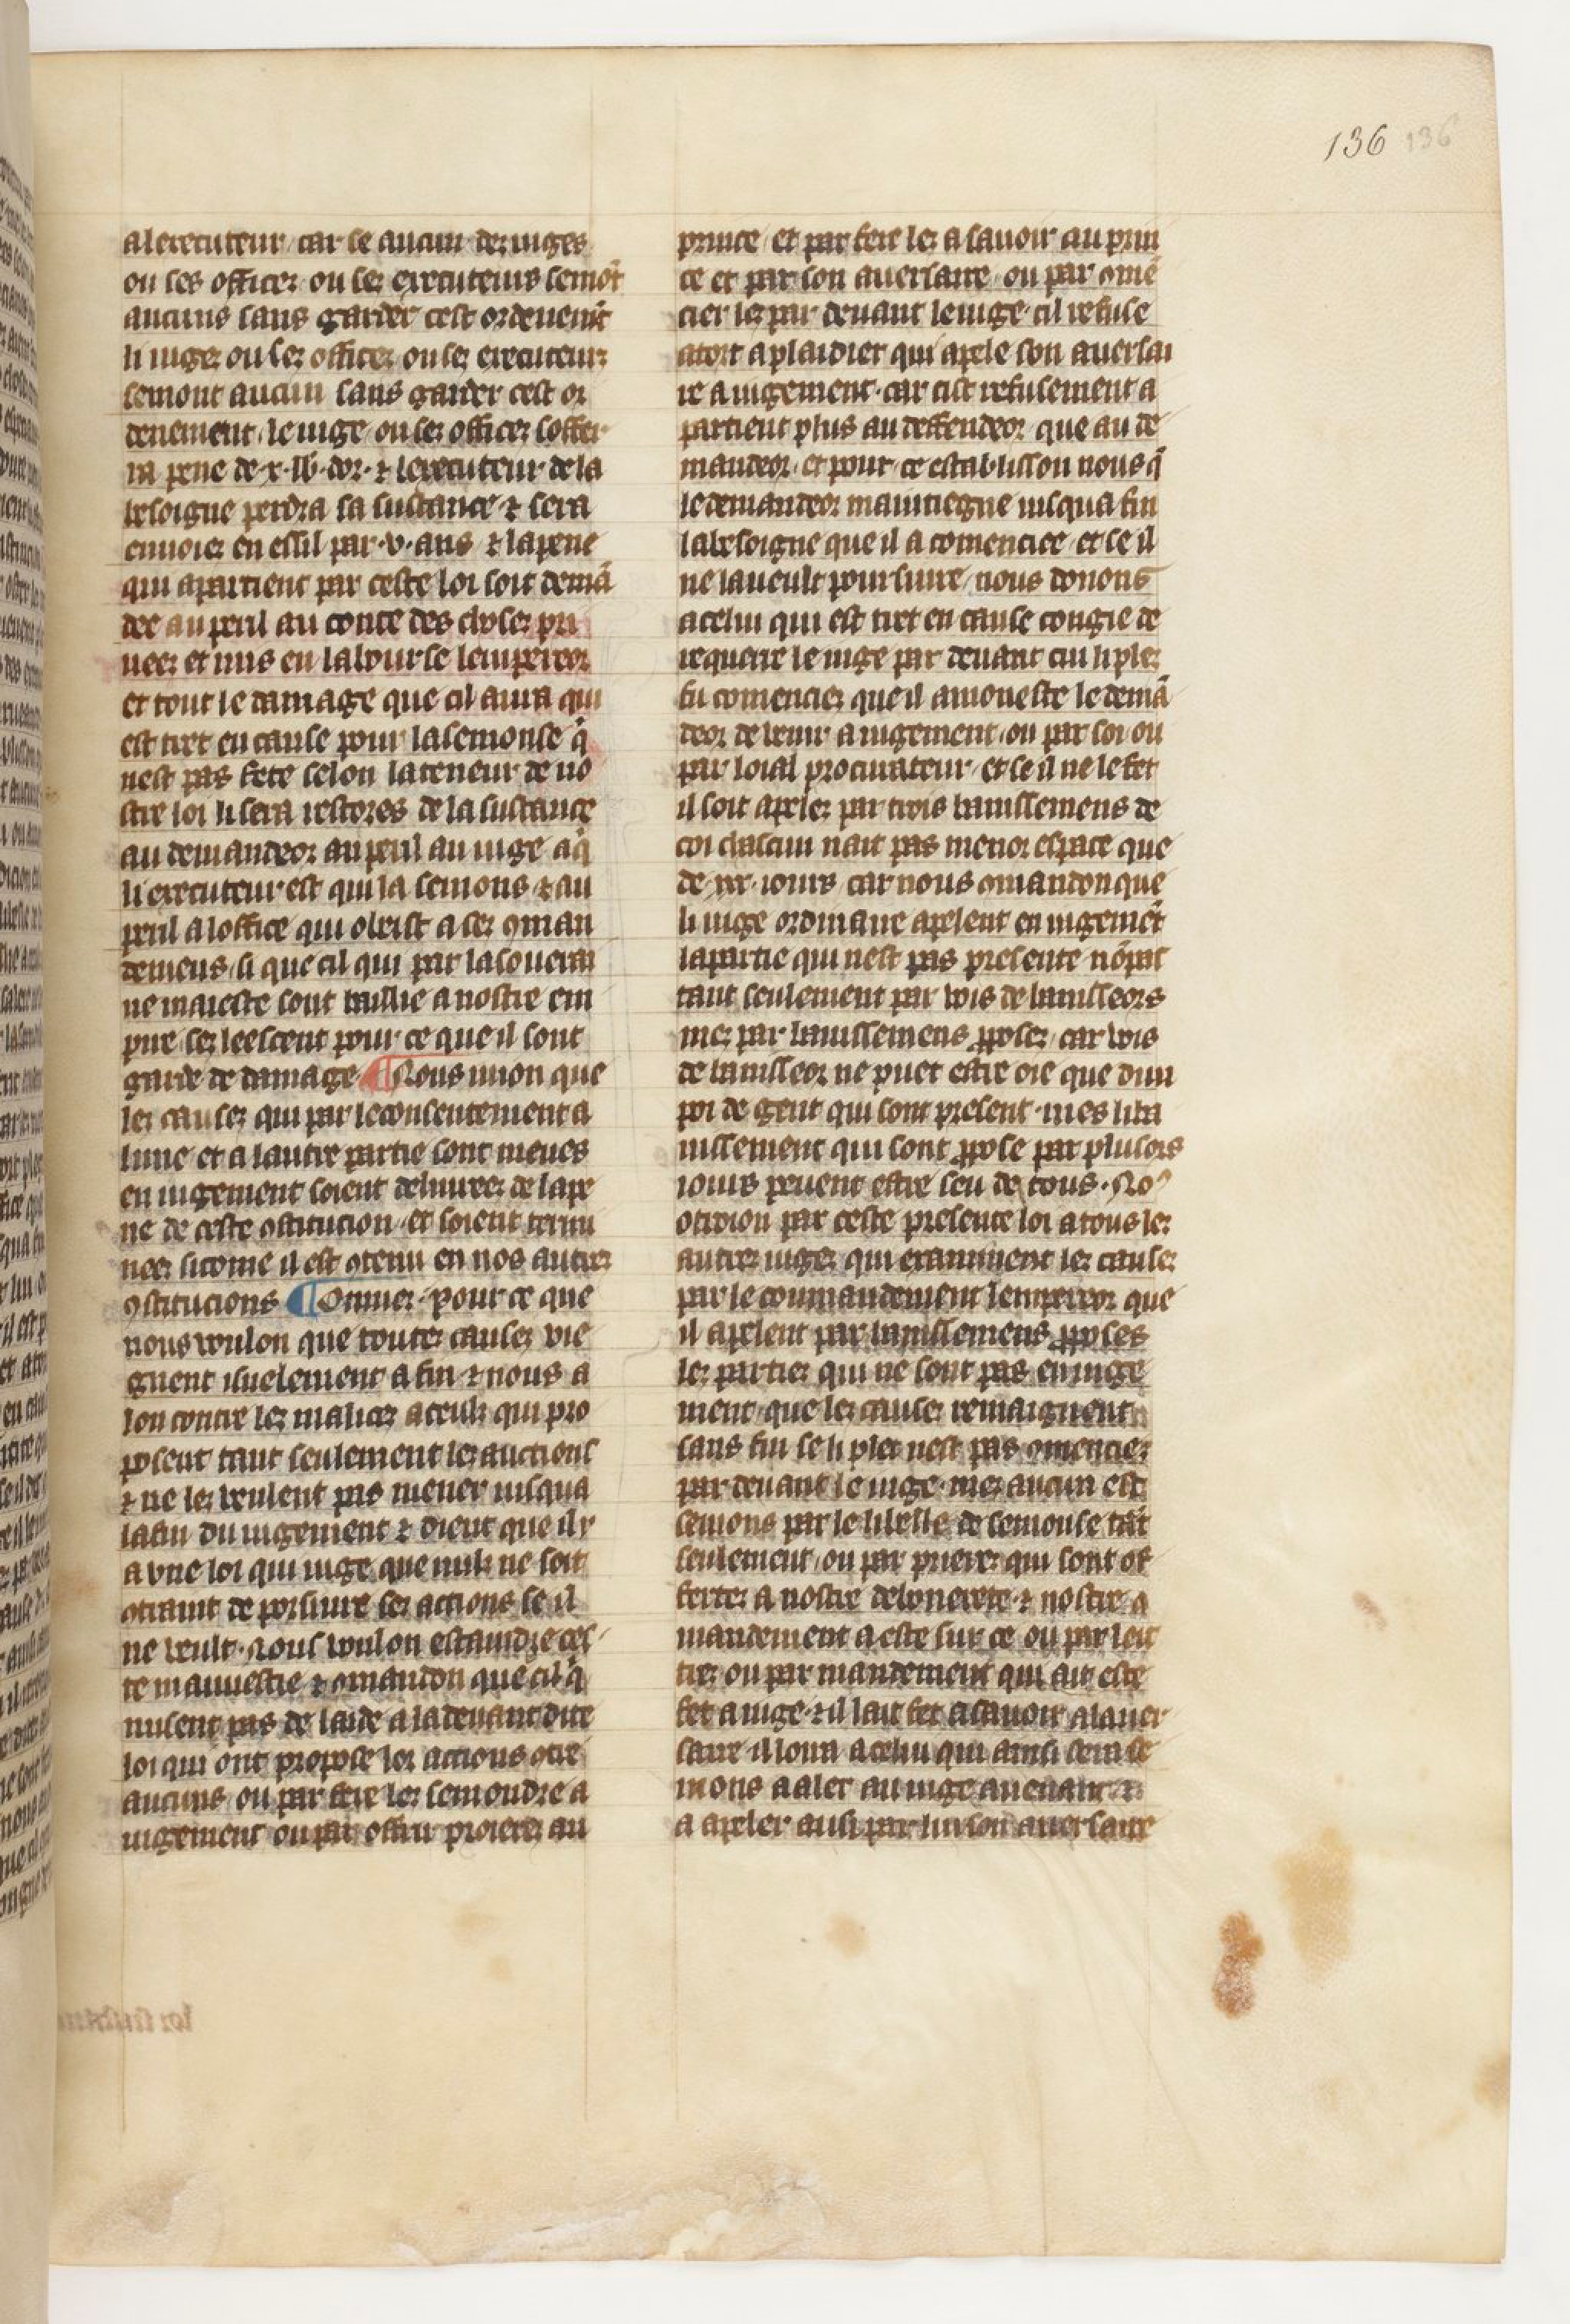 136 136
alexecuteur, car se aucun dez iuges
ou les officez ou lez executeurs semōt
aucuns sans garder cest ordenemēt
li iugez ou lez officez ou lez executeurz
semont aucun sans garder cest or
denement, le iuge ou lez officez soffer
ra pene de .x. lb. dor. ⁊ lexecuteur de la
besoigne perdra sa sustance ⁊ sera
enuoiez en essil par .v. ans ⁊ la pene
qui apartient par ceste loi soit demā
dee au peril au conte des chosez pri
ueez et mis en la bourse lempereor
et tout le damage que cil aura qui
est tret en cause pour la semonse q̄
nest pas fete selon la teneur de no
stre loi li sera restores de la sustance
au demandeor au peril au iuge a q̄
li executeur est qui la semons ⁊ au
peril a loffice qui obeist a sez ꝯman
demens, si que cil qui par la souerai
ne maieste sont baillie a nostre em
pire, sez leescent pour ce que il sont
garde de damage ¶ Nous uuion que
lez causez qui par le consentement a
lune et a lautre partie sont meues
en iugement soient deliureez de la pe
ne de ceste ꝯstitucion, et soient termi
neez si come il est ꝯtenu en nos autrez
ꝯstitucions ¶ Omnez. pour ce que
nous voulon que toutez causez vie
gnent isuelement a fin ⁊ nous a
lon contre lez malicez a ceulz qui pro
posent tant seulement lez auctions
⁊ ne lez veulent pas mener iusqua
la fin du iugement ⁊ dient que il y
a vne loi qui iuge que nulz ne soit
ꝯtraint de porsiure sez actions se il
ne veult. Nous voulon estaindre ces
te mauuestie ⁊ ꝯmandon que cil q̄
nusent pas de laide a la deuant dite
loi qui ont propose lor actions ꝯtre
aucuns, ou par fere lez semondre a
iugement ou par offrir proierez au
prince, et par fere lez a sauoir au prin
ce et par son auersaire, ou par ꝯmē
cier lez par deuant le iuge. cil refuse
a tort a plaidier qui apele son auersai
re a iugement. car cist refusement a
partient plus au deffendeor que au de
mandeor. et pour ce establisson nous q̄
le demandeor maintiegne iusqua fin
la besoigne que il a comenciee, et se il
ne la veult poursiure, nous donons
a celui qui est tret en cause congie de
requerre le iuge par deuant cui li plez
fu comenciez que il amoneste le demā
deor de venir a iugement, ou par soi ou
par loial procurateur, et se il ne le fet
il soit apelez par trois banissemens de
coi chascun nait pas menor espace que
de .xxx. iours, car nous ꝯmandon que
li iuge ordinaire apelent en iugemēt
la partie qui nest pas presente nō pas
tant seulement par vois de banisseors
mez par banissemens ꝓposez, car vois
de banisseor ne puet estre oie que dun
poi de gent qui sont present. mes li ba
nissement qui sont ꝓpose par plusors
iours peuent estre seu de tous. Noꝰ
otroion par ceste presente loi a tous lez
autrez iugez qui examinent lez causez
par le coumandement lempereor que
il apelent par banissemens ꝓposes
lez partiez qui ne sont pas en iuge
ment, que lez causez remaignent
sans fin se li plez nest pas ꝯmenciez
par deuant le iuge. mez aucun est
semons par le libelle de semonse tāt
seulement, ou par prierez qui sont of
fertez a nostre debonerete. ⁊ nostre ꝯ
mandement a este sur ce ou par let
trez ou par mandement qui ait este
fet a iuge. ⁊ il lait fet a sauoir a lauer
saire. il loira a celui qui ainsi sera se
mons a aler au iuge auenant ⁊
a apeler ausi par lui son auersaire